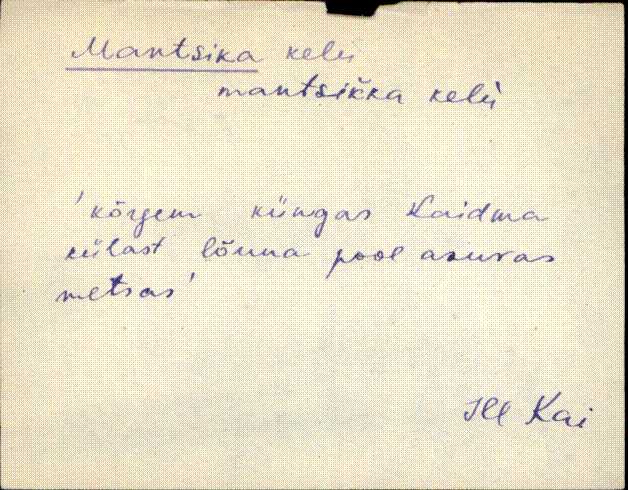 Mantsika kelü
mantsikka kelü
'kõrgem küngas Kaidma
külast lõuna pool asuvas
metsas'
Ill Kai